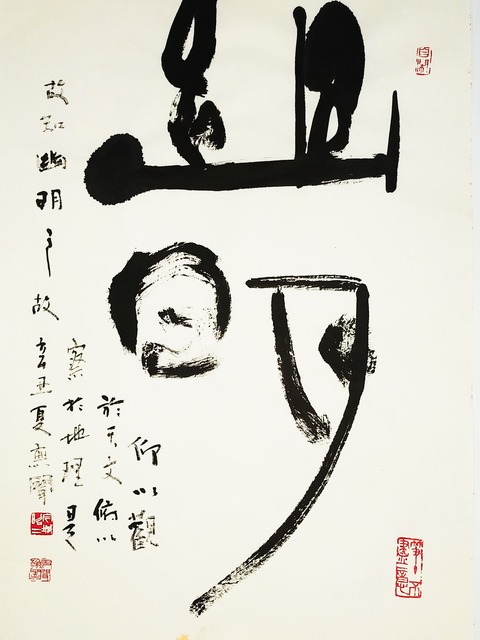 幽明
仰以觀
於天文俯以
察於地理是
故知幽明之故辛丑夏